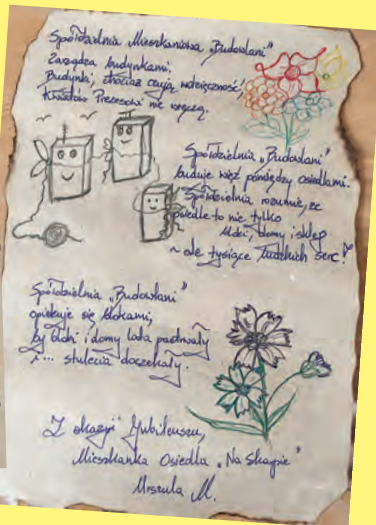 Spółdzielnia Mieszkaniowa „Budowlani”
Zarządza budynkami.
Budynki, chociaż czują wdzięczność,
Kwiatów Prezesowi nie wręczą.
Spółdzielnia „Budowlani”
buduje więź pomiędzy osiedlami.
Spółdzielnia rozumie, że
osiedle to nie tylko
bloki, domy i sklep
~ ale tysiące ludzkich serc!
Spółdzielnia „Budowlani”
opiekuje się blokami,
by bloki i domy lata przetrwały
i... stulecia doczekały.
Z okazji Jubileuszu,
Mieszkanka Osiedla „Na Skarpie”
Urszula M.